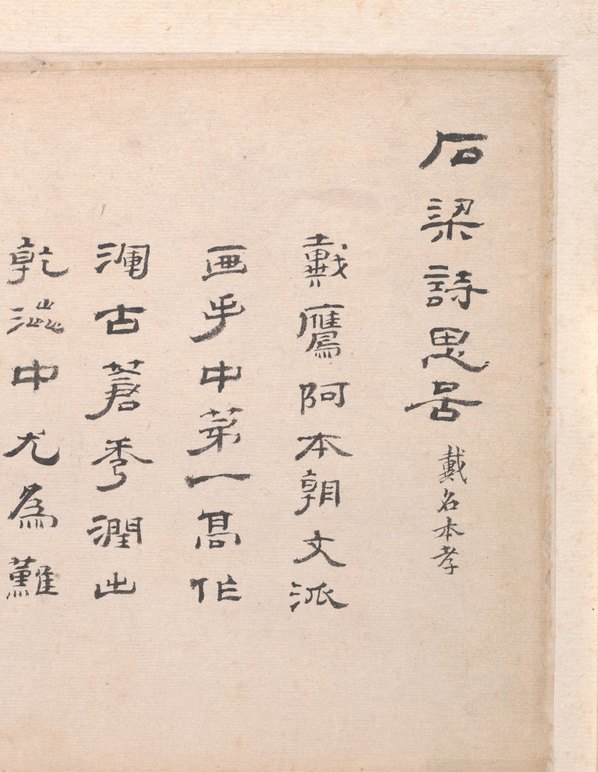 石梁詩思啚 戴名本孝
戴鷹阿本朝文派
画手中苐一髙作
渾古蒼秀潤出
乾澁中尤為難